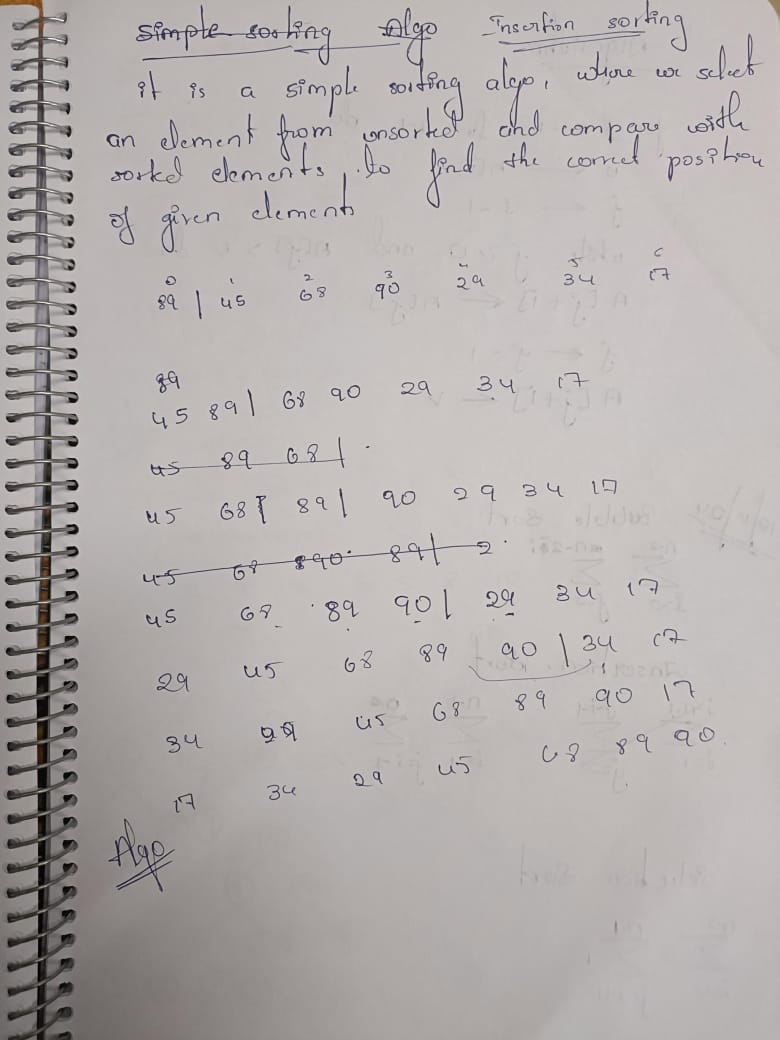 Simple sorting Algo Insertion sorting
it is a simple sorting algo, where we select
an element from unsorted and compare with
sorted elements, to find the correct position
of given elements
0 1 2 3 4 5 6
89 | 45 68 90 29 34 17
89
45 89 | 68 90 29 34 17
45 89 68 |
45 68 89 | 90 29 34 17
45 68 890 89 | 2
45 68 89 90 | 29 34 17
29 45 68 89 90 | 34 17
34 29 45 68 89 90 17
17 34 29 45 68 89 90
Algo